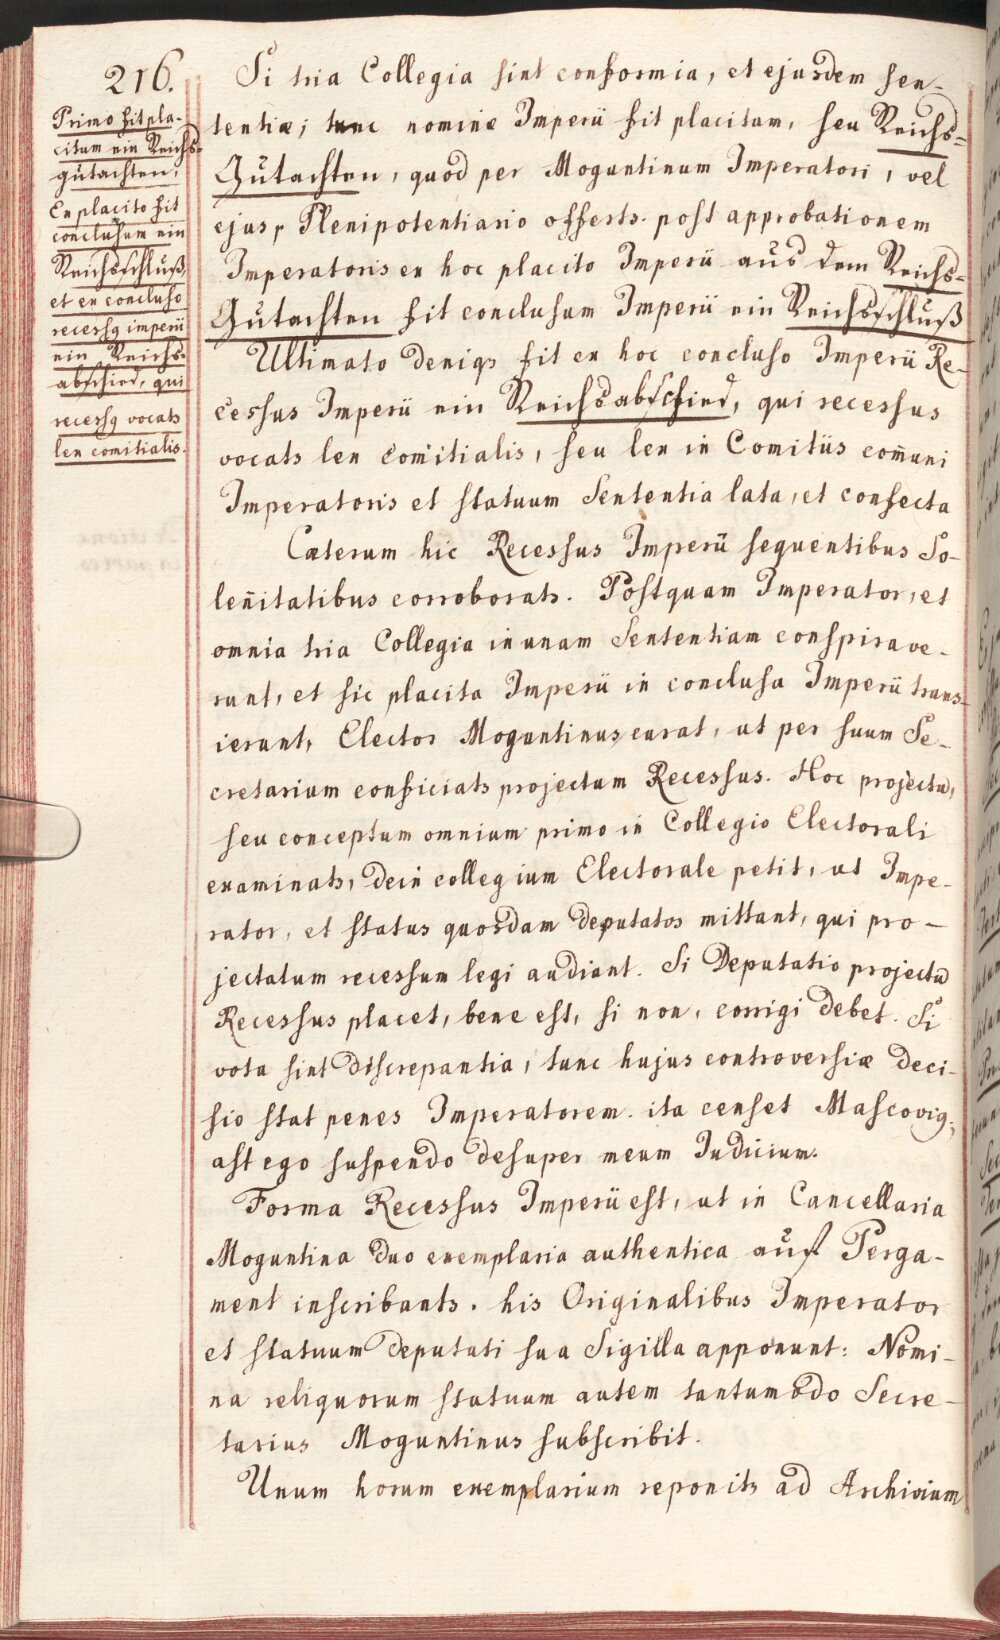 216.
Primo fit pla-
citum ein Reichs-
gütachten,
Ex placito fit
conclusum ein
Reichsschluß
et ex concluso
recessq imperii
ein Reichs-
abschied, qui
recessq vocatr
lex comitialis.
Si tria Collegia sint conformia, et ejusdem sen-
tentiæ; tunc nomine Imperii fit placitum, seu Reichs-
Gütachten, quod per Moguntinum Imperatori, vel
ejus, Plenipotentiario offertr. post approbationem
Imperatoris ex hoc placito Imperii aus dem Reichs-
Gütachten fit conclusum Imperii ein Reichsschluß
Ultimato deniq fit ex hoc concluso Imperii Re-
cessus Imperii ein Reichsabschied, qui recessus
vocatr lex comitialis, seu lex in Comitiis com̄uni
Imperatoris et statuum Sententia lata, et confecta
Cæterum hic Recessus Imperii sequentibus So-
len̄itatibus corroboratr. Postquam Imperator, et
omnia tria Collegia in unam Sententiam conspirave-
runt, et sic placita Imperii in conclusa Imperii trans-
ierunt, Elector Moguntinus curat, ut per suum Se-
cretarium conficiatr projectum Recessus. Hoc projectū,
seu conceptum omnium primo in Collegio Electorali
examinatr, dein collegium Electorale petit, ut Impe-
rator, et status quosdam deputatos mittant, qui pro-
jectatum recessum legi audiant. Si Deputatio projectū
Recessus placet, bene est, si non, corrigi debet. Si
vota sint discrepantia, tunc hujus controversiæ deci-
sio stat penes Imperatorem. ita censet Mascoviq;
ast ego suspendo desuper meum Judicium.
Forma Recessus Imperii est, ut in Cancellaria
Moguntina duo exemplaria authentica auf Perga-
ment inscribantr. his Originalibus Imperator
et statuum deputati sua Sigilla apponunt: Nomi-
na reliquorum statuum autem tantumodo Secre-
tarius Moguntinus subscribit.
Unum horum exemplarium reponitr ad Archivium